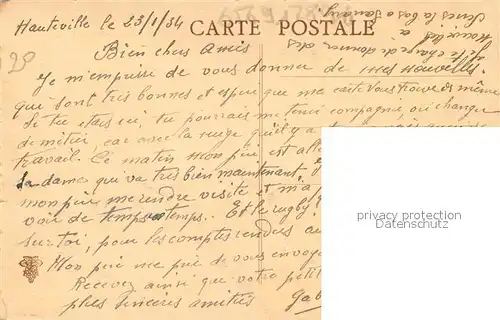 Hauteville le 23/1/34
CARTE POSTALE
20
Bien chers amis
Je m'empresse de vous donner de mes nouvelles.
qui sont très bonnes et espère que ma carte vous trouve de même
Si tu étais ici, tu pourrais me tenir compagnie, ou changer
de métier, car avec la neige qu'il y a
travail. Ce matin mon père est allé
la dame qui va très bien maintenant,
mon père me rendre visite et m'a
voir de temps en temps.. Et le rugby?
sur toi, pour les comptes rendus au
Mon père me prie de vous envoye
Recevez ainsi que votre petit
plus sincères amitiés
Gab
privacy protection
www.oldthing.de